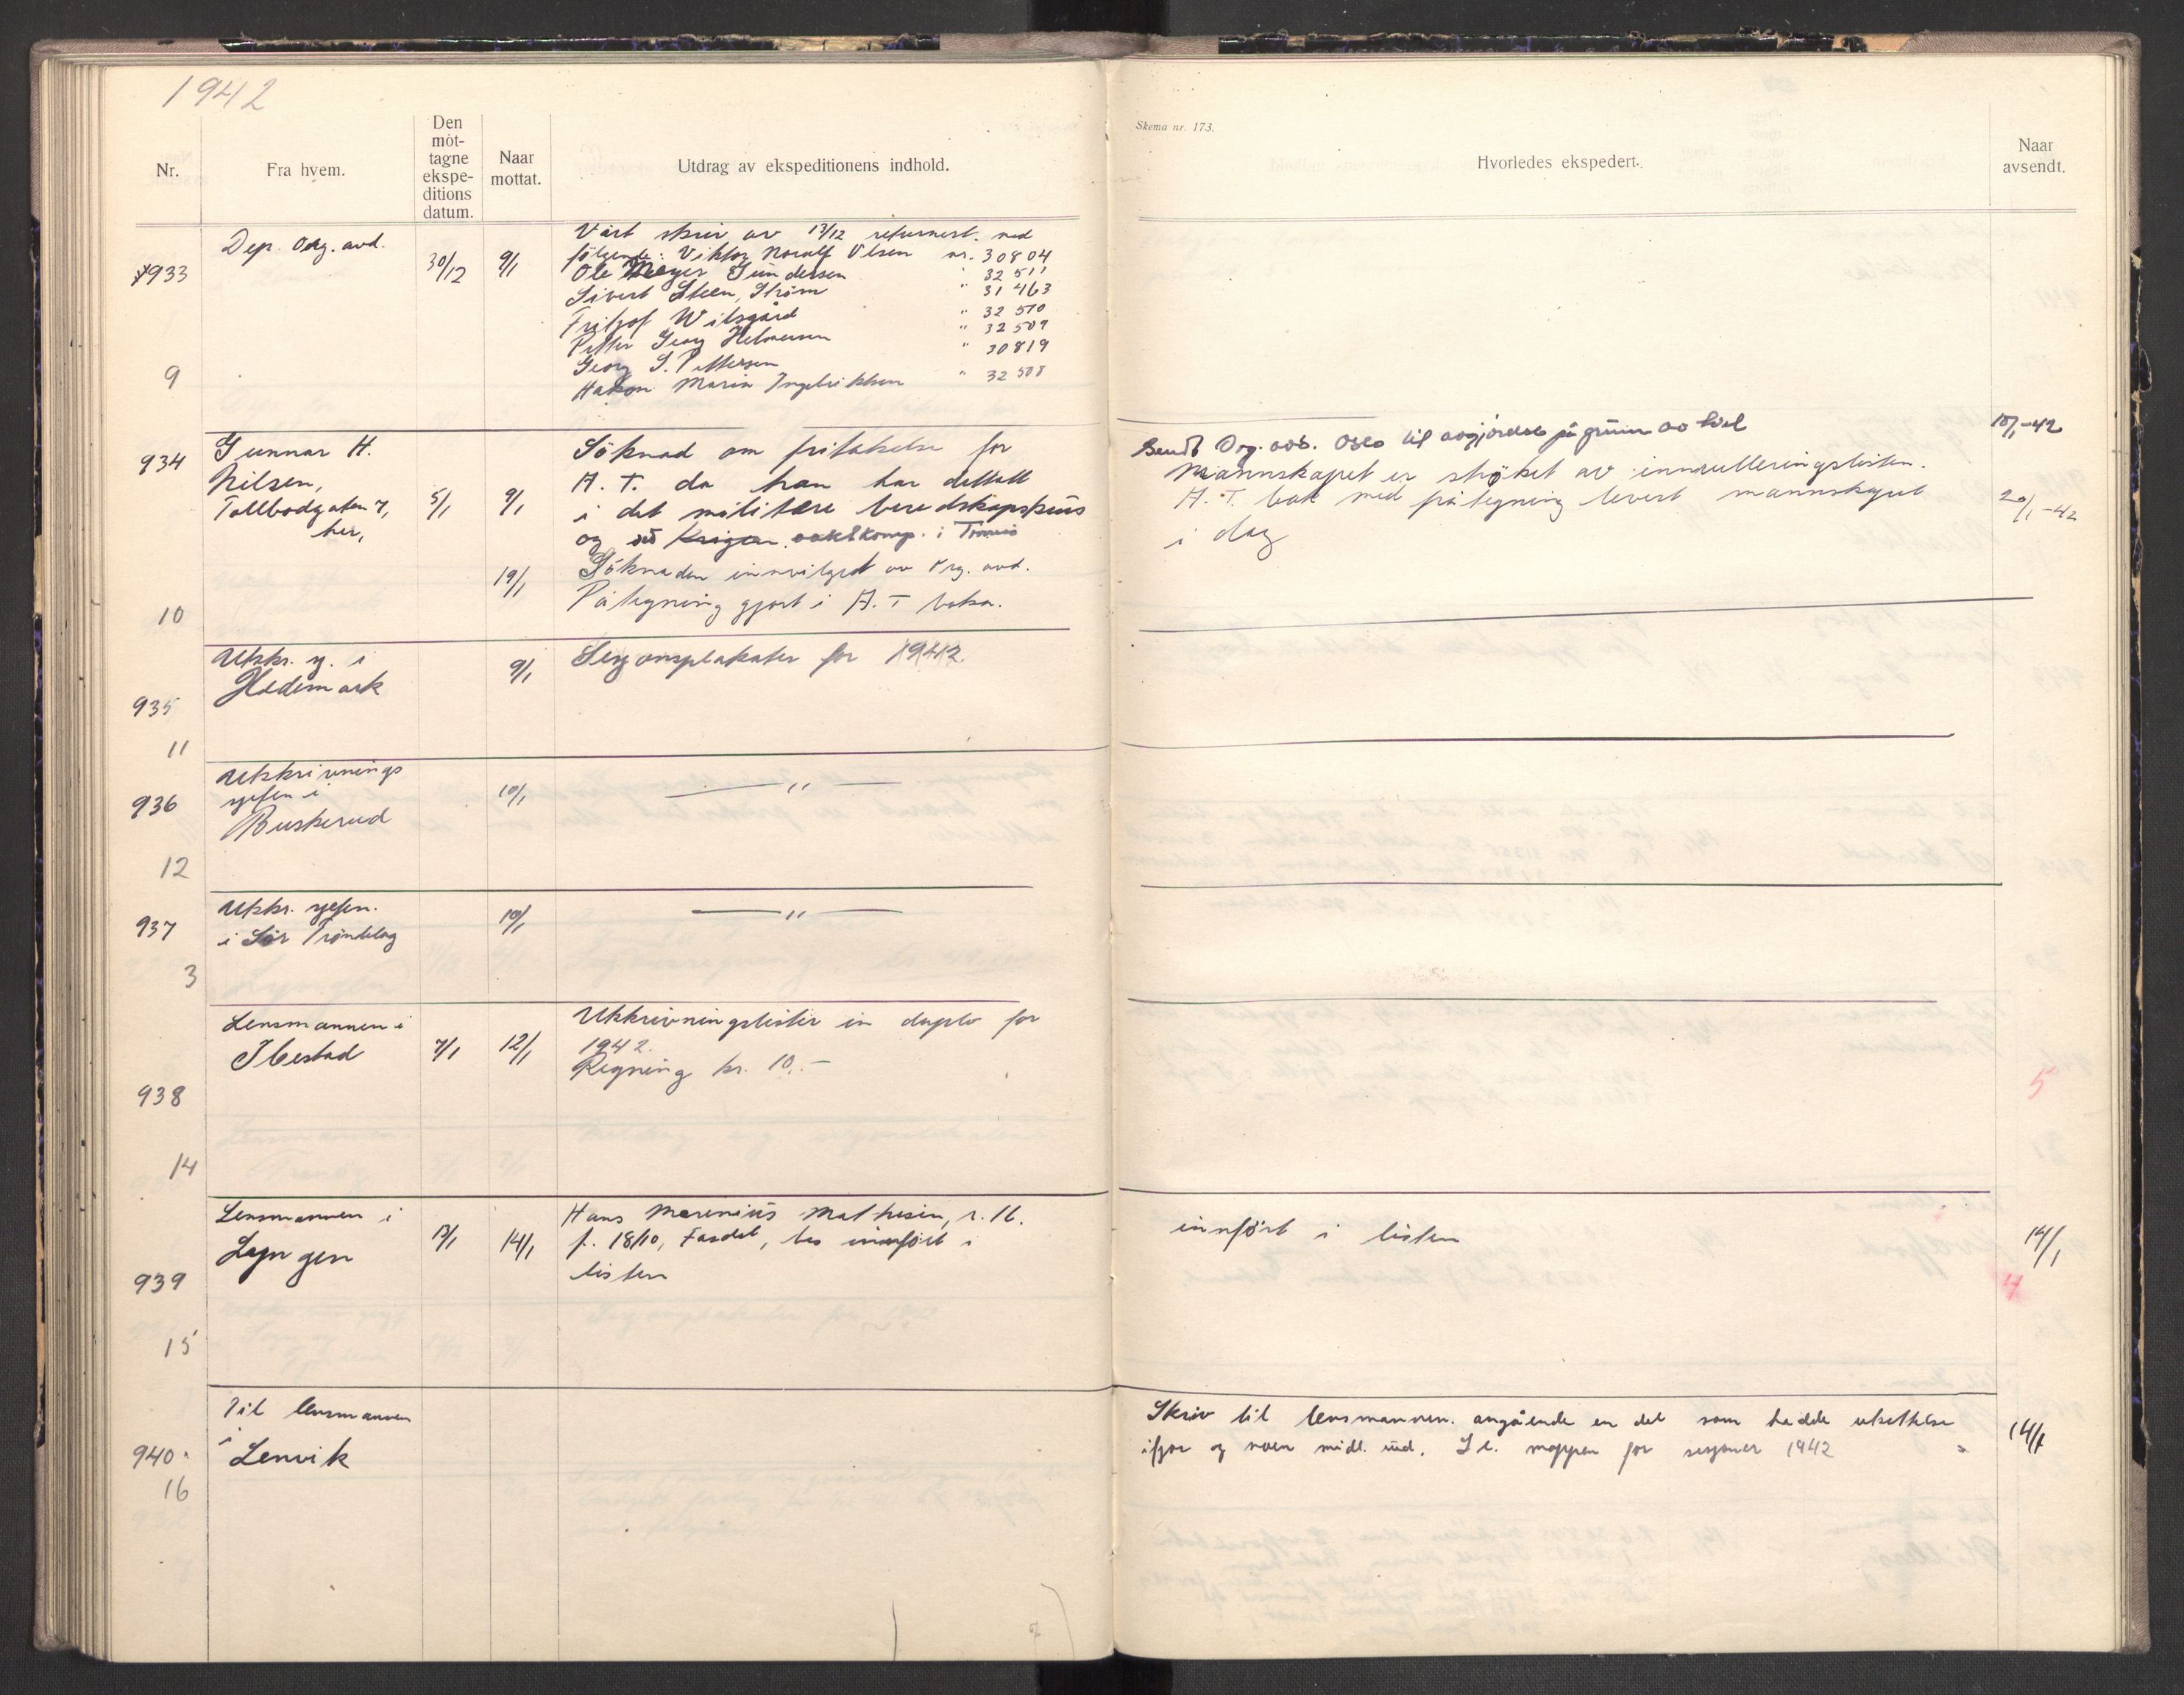 1942
Skema nr. 173.
Nr.
Fra hvem.
Den mót-tagne ekspe-ditions datum.
Naar mottat.
Utdrag av ekspeditionens indhold.
Hvorledes ekspedert.
Naar avsendt.
933
9
Dep. Org. avd.
30/12
9/1
Vårt skriv av 13/12 returnert. med
følgende: Viktor Noralf Olsen nr. 30804
Ole Meyer Gundersen " 32511
Sivert Steen, Strøm " 31463
Fritjof Wilsgård " 32510
Petter Georg Helmersen " 32509
Georg S. Pettersen " 30819
Håkon Marin Ingebriktsen " 32508
934
10
Gunnar H.
Nilsen,
Tollbodgaten 7,
her,
5/1
9/1
Söknad om fritakelse for
A. T. da han har deltatt
i det militære beredskapskurs
og ved Krigen vaktkomp. i Tromsö
19/1
Söknaden innvilget av Org. avd.
Påtegning gjort i A. T boka.
Sendt Org. avd. Oslo til avgjørelse på grunn av tvil
10/1-42
Mannskapet er strøket av innrulleringslisten.
A. T. bok med påtegning levert mannskapet
i dag
20/1-42
935
11
Utskr. sj. i
Hedemark
9/1
Sesjonsplakater for 1942.
936
12
Utskrivnings
sjefen i
Buskerud
10/1
— " —
937
3
Utskr. sjefen.
i Sör Trøndelag
10/1
— " —
938
14
Lensmannen i
Ibestad
7/1
12/1
Utskrivningslister in duplo for
1942.
Regning kr. 10.-
5
939
15
Lensmannen i
Lyngen
13/1
14/1
Hans Marenius Mathisen, r. 16.
f. 18/10, bes innført i
listen
innfört i listen
14/1
4
940.
16
Til lensmannen
i Lenvik
Skriv til lensmannen. angående en del som hadde utsettelse
ifjor og noen midl. ud. Se. mappen for sesjoner 1942
14/1